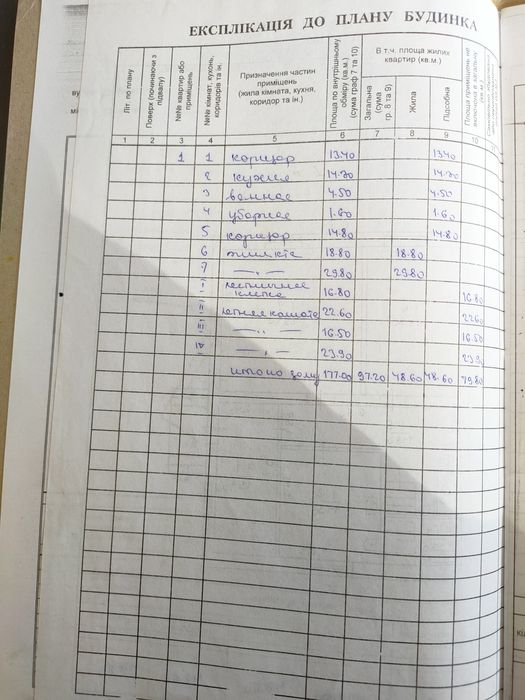 ЕКСПЛІКАЦІЯ ДО ПЛАНУ БУДИНКА
Літ. по плану
Поверх (починаючи з підвалу)
№№ квартир або приміщень
№№ кімнат, кухонь, коридорів та ін.
Призначення частин приміщень (жила кімната, кухня, коридор та ін.)
Площа по внутрішньому обміру (кв.м.) (сума граф 7 та 10)
В т.ч. площа жилих квартир (кв.м.)
Загальна (сума гр. 8 та 9)
Жила
Підсобна
Площа приміщень не включена в загальну (кв.м.)
1 2 3 4 5 6 7 8 9 10
1 1 коридор 13.40 13.40
2 кухня 14.20 14.20
3 ванная 4.50 4.50
4 уборная 1.60 1.60
5 коридор 14.80 14.80
6 18.80 18.80
7 —„— 29.80 29.80
I лестничная клетка 16.80 16.80
II 22.60 22.60
III —„— 16.50 16.50
IV —„— 23.90 23.90
итого 177.00 97.20 48.60 48.60 79.80